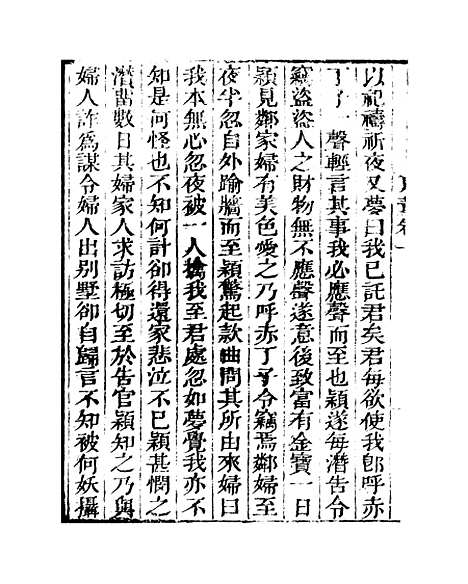 以祀禱祈夜又夢曰我已託君矣君每欲使我即呼赤
丁子一聲輕言其事我必應聲而至也穎遂每潛告令
竊盜恣人之財物無不應聲遂意後致富有金寶一日
穎見鄰家婦有美色愛之乃呼赤丁子令竊焉鄰婦至
夜半忽自外踰牆而至穎驚起款曲問其所由來婦曰
我本無心忽夜被一人擒我至君處忽如夢覺我亦不
知是何怪也不知何計卻得還家悲泣不已穎甚憫之
潛留數日其婦家人求訪極切至於告官穎知之乃與
婦人詐為謀令婦人出別墅卻自歸言不知被何妖攝